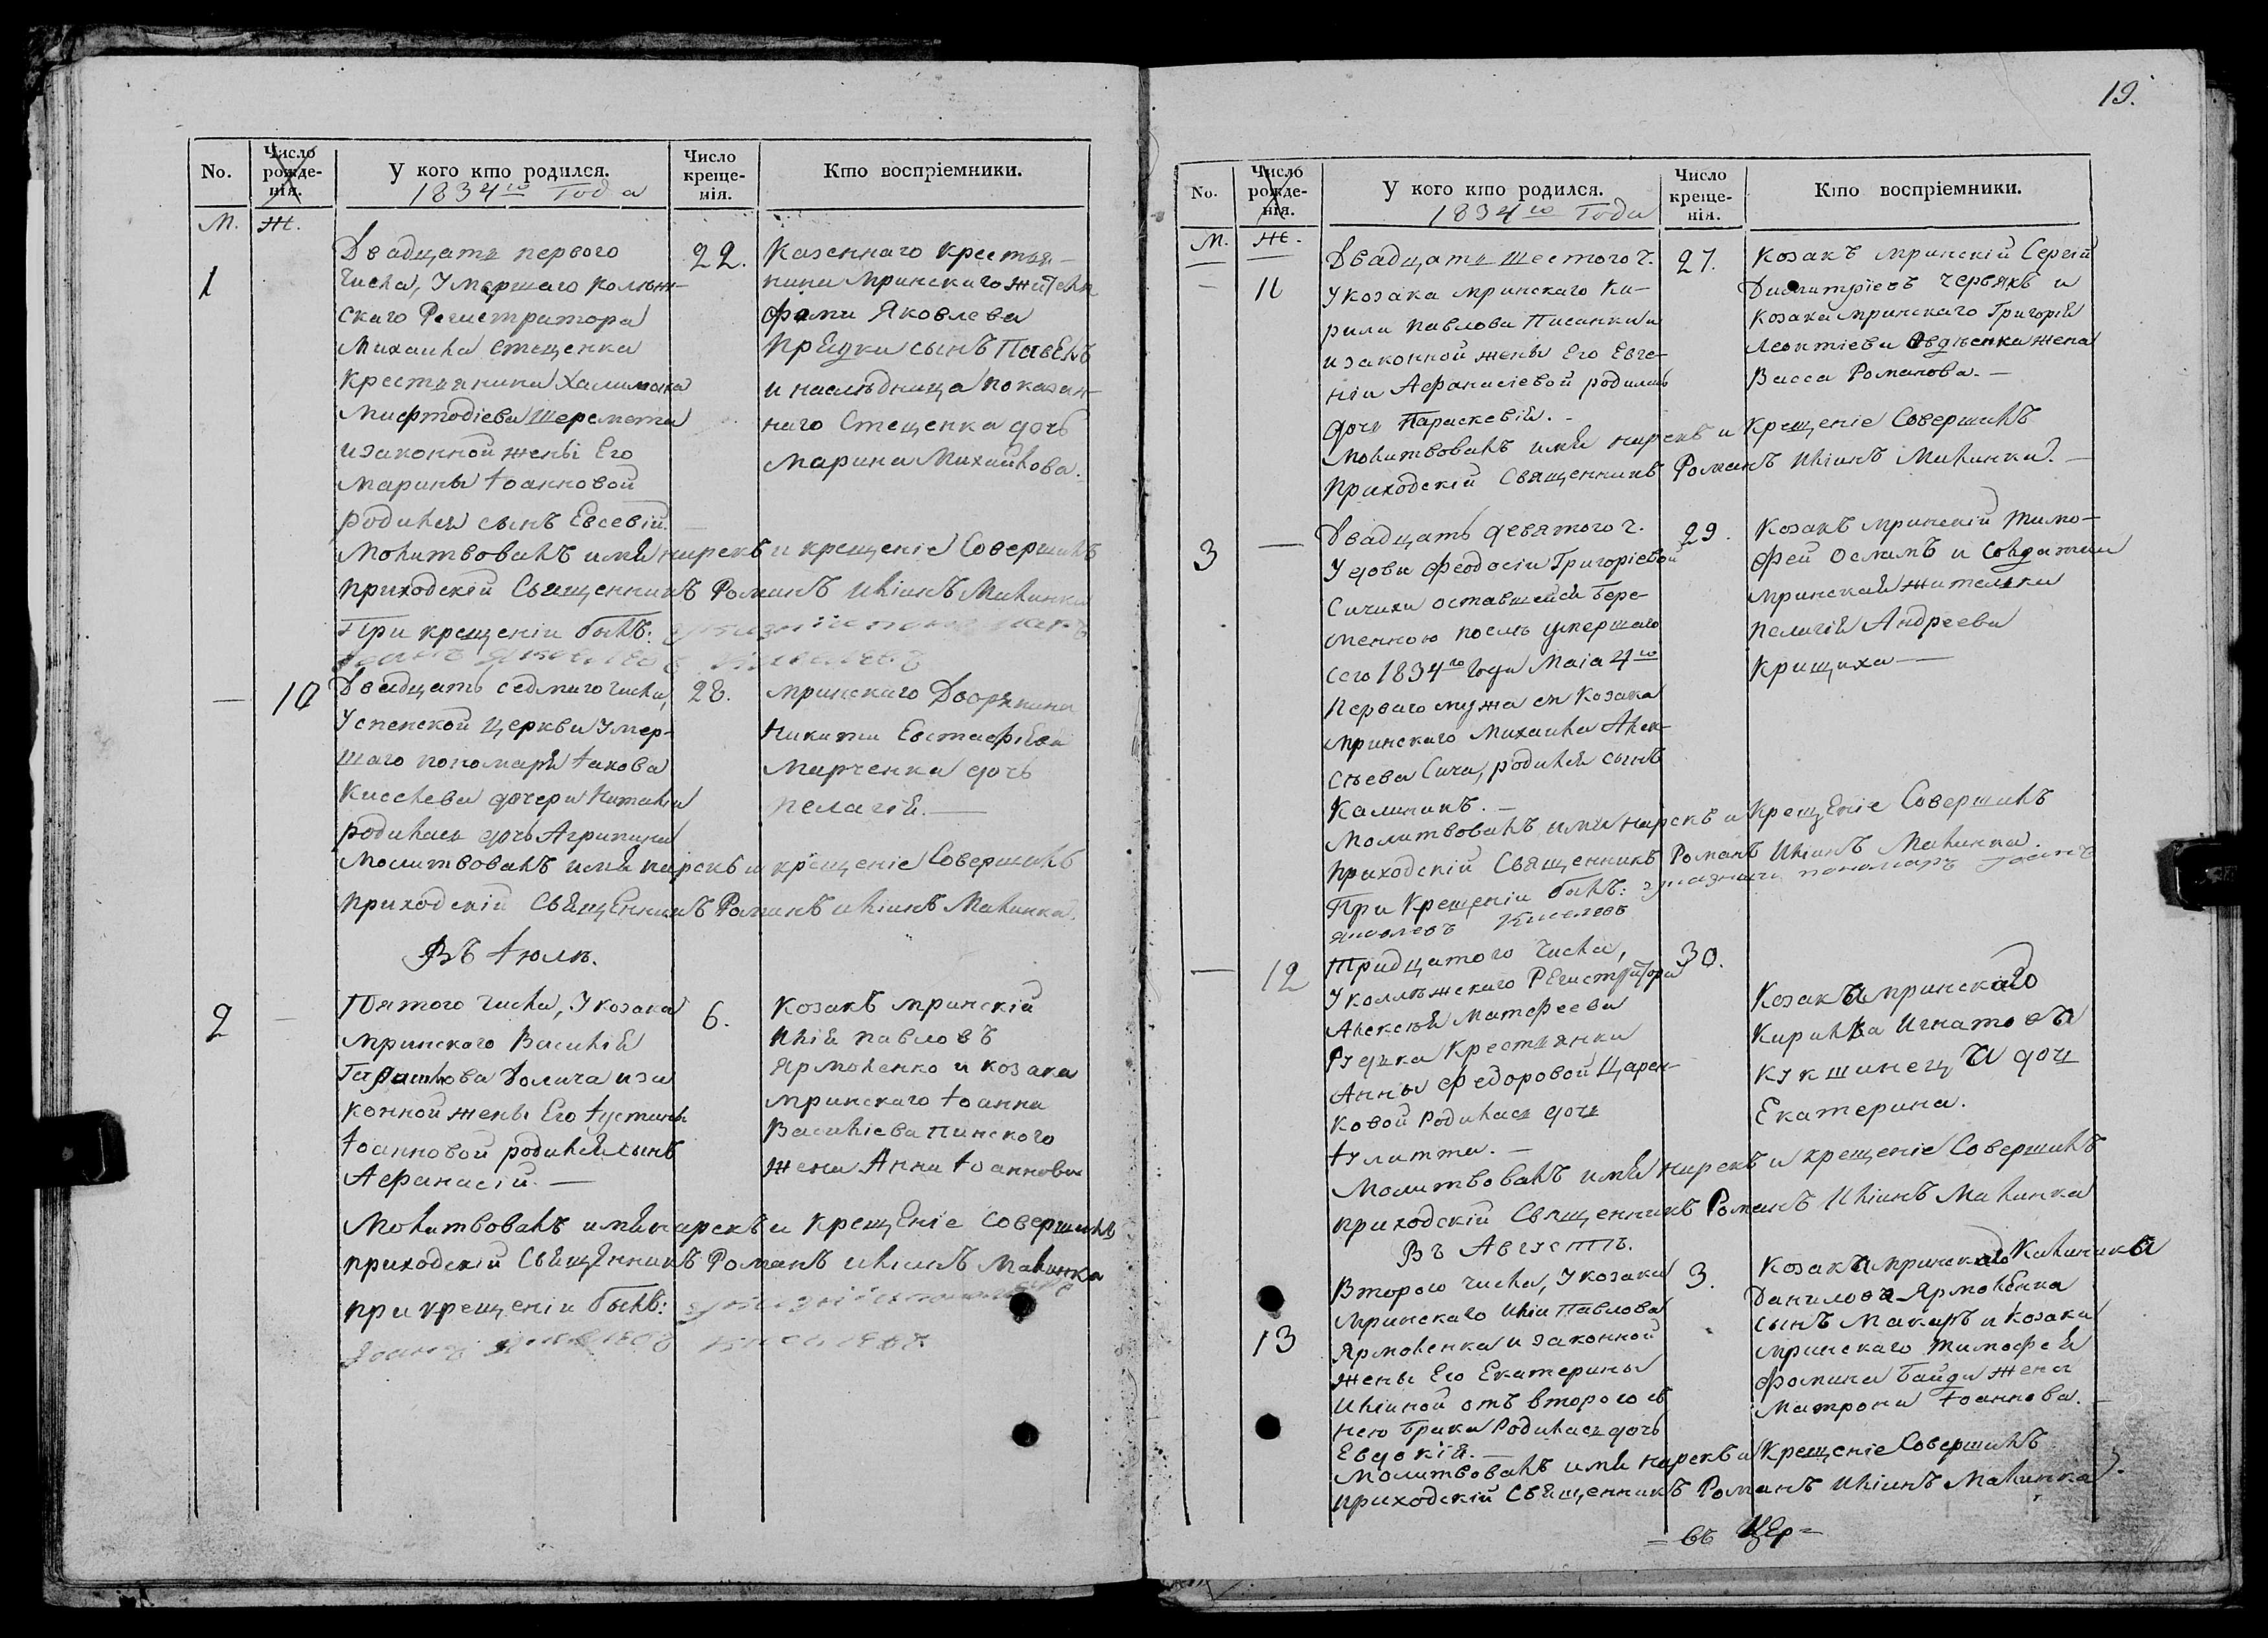 No.
Число рожде-нія.
У кого кто родился.
1834го Года
Число креще-нія.
Кто воспріемники.
М. Ж.
1
Двадцать первого
числа, Умершаго колѣж-
скаго Регистратора
Михаила Стеценка
Крестьянина Халимона
Мифтодіева Шеремета
изаконной жены Его
Марины Іоанновой
родился сынъ Евсевій.
22.
Казеннаго крестья-
нина Мринскаго жителя
Фомы Яковлева
сынъ Павелъ
и наслѣдница показан-
наго Стеценка дочь
Марина Михайлова.
Молитвовалъ имя нарекъ и крещеніе Совершилъ
приходскій Священникъ Романъ Иліинъ Малинка
При крещеніи былъ:
— 10
Двадцать седмаго числа,
Успенской Церкви Умер-
шаго пономаря Іакова
Киселева дочери Наталіи
родилась дочь Агрипина
28.
Мринскаго Дворянина
Никиты Евстафіева
Марченка дочь
Пелагія. —
Молитвовалъ имя нарекъ и крещеніе Совершилъ
приходскій Священникъ Романъ Иліинъ Малинка.
Въ Іюлѣ.
2 —
Пятого числа, У козака
Мринскаго Василія
Долича иза
конной жены Его Іустины
Іоанновой родился сынъ
Афанасій. —
6.
Козакъ Мринскій
Илія Павловъ
Ярмоленко и козака
Мринскаго Іоанна
Василіева Пинского
жена Анна Іоаннова
Молитвовалъ имя нарекъ и Крещеніе Совершилъ
приходскій Священникъ Романъ Иліинъ Малинка
при крещеніи былъ:
19.
No.
Число рожде-нія.
У кого кто родился.
1834го Года
Число креще-нія.
Кто воспріемники.
М. Ж.
— 11
Двадцать шестого ч.
У козака Мринскаго Ки-
рила Павлова Писанки и
изаконной жены Его Евге-
ніи Афанасіевой родилась
дочь Параскевія. -
27.
Козакъ Мринскій Сергій
Димитріевъ Червякъ и
Козака Мринскаго Григорія
Леонтіева Овдѣенка жена
Васса Романова. —
Молитвовалъ имя нарекъ и Крещеніе Совершилъ
Приходскій Священникъ Романъ Иліинъ Малинка. —
3 —
Двадцать девятого ч.
У вдовы Феодосіи Григоріевой
Сичихи оставшейся бере-
менною послѣ умершаго
сего 1834го Года Маія 4го
Перваго мужа ея Козака
Мринскаго Михаила Алек-
сѣева Сича, родился сынъ
Калиникъ. —
29.
Козакъ Мринскій Тимо-
фей Осмакъ и Солдатки
Мринская жителька
Пелагія Андреева
Крищиха —
Молитвовалъ имя нарекъ и Крещеніе Совершилъ
Приходскій Священникъ Романъ Иліинъ Малинка.
При Крещеніи былъ: указный пономарь Іоаннъ
Яковлевъ Киселевъ
— 12
Тридцатого числа,
У коллѣжскаго Регистратора
Алексѣя Матфеева
Крестьянки
Анны Федоровой Царен-
ковой Родилась дочь
Іулитта. —
30.
Козака Мринскаго
Кирилла Игнатова
Кукшинеца дочь
Екатерина.
Молитвовалъ имя нарекъ и крещеніе Совершилъ
приходскій Священникъ Романъ Иліинъ Малинка
Въ Августѣ.
13
Второго числа, У козака
Мринскаго Иліи Павлова
Ярмоленка и законной
жены Его Екатерины
Иліиной отъ второго съ
нею брака Родилась дочь
Евдокія. —
3.
Козака Мринскаго Калиника
Данилова Ярмоленка
сынъ Макаръ и Козака
Мринскаго Тимофея
Фомина Байды жена
Матрона Іоаннова. —
Молитвовалъ имя нарекъ и Крещеніе Совершилъ
приходскій Священникъ Романъ Иліинъ Малинка.
= въ Цер=